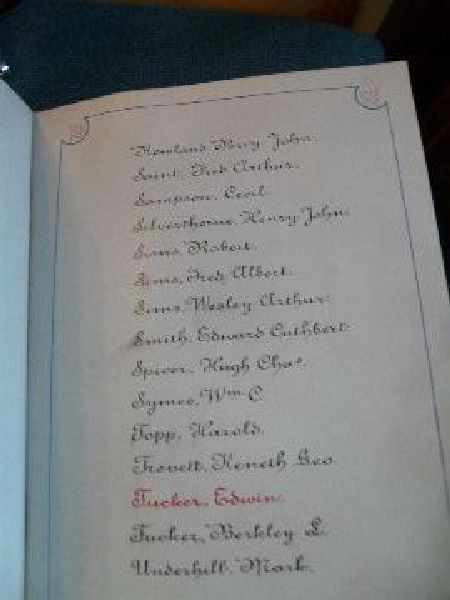 Rowland, Percy John.
Saint, Fred Arthur.
Sampson, Cecil.
Silverthorne, Henry John.
Sims, Robert.
Sims, Fred, Albert.
Sims, Wesley Arthur.
Smith, Edward Cuthbert.
Spicer, Hugh Chas.
Symes, Wm C.
Topp, Harold.
Trevett, Keneth Geo.
Tucker, Edwin.
Tucker, Berkley L.
Underhill, Mark.